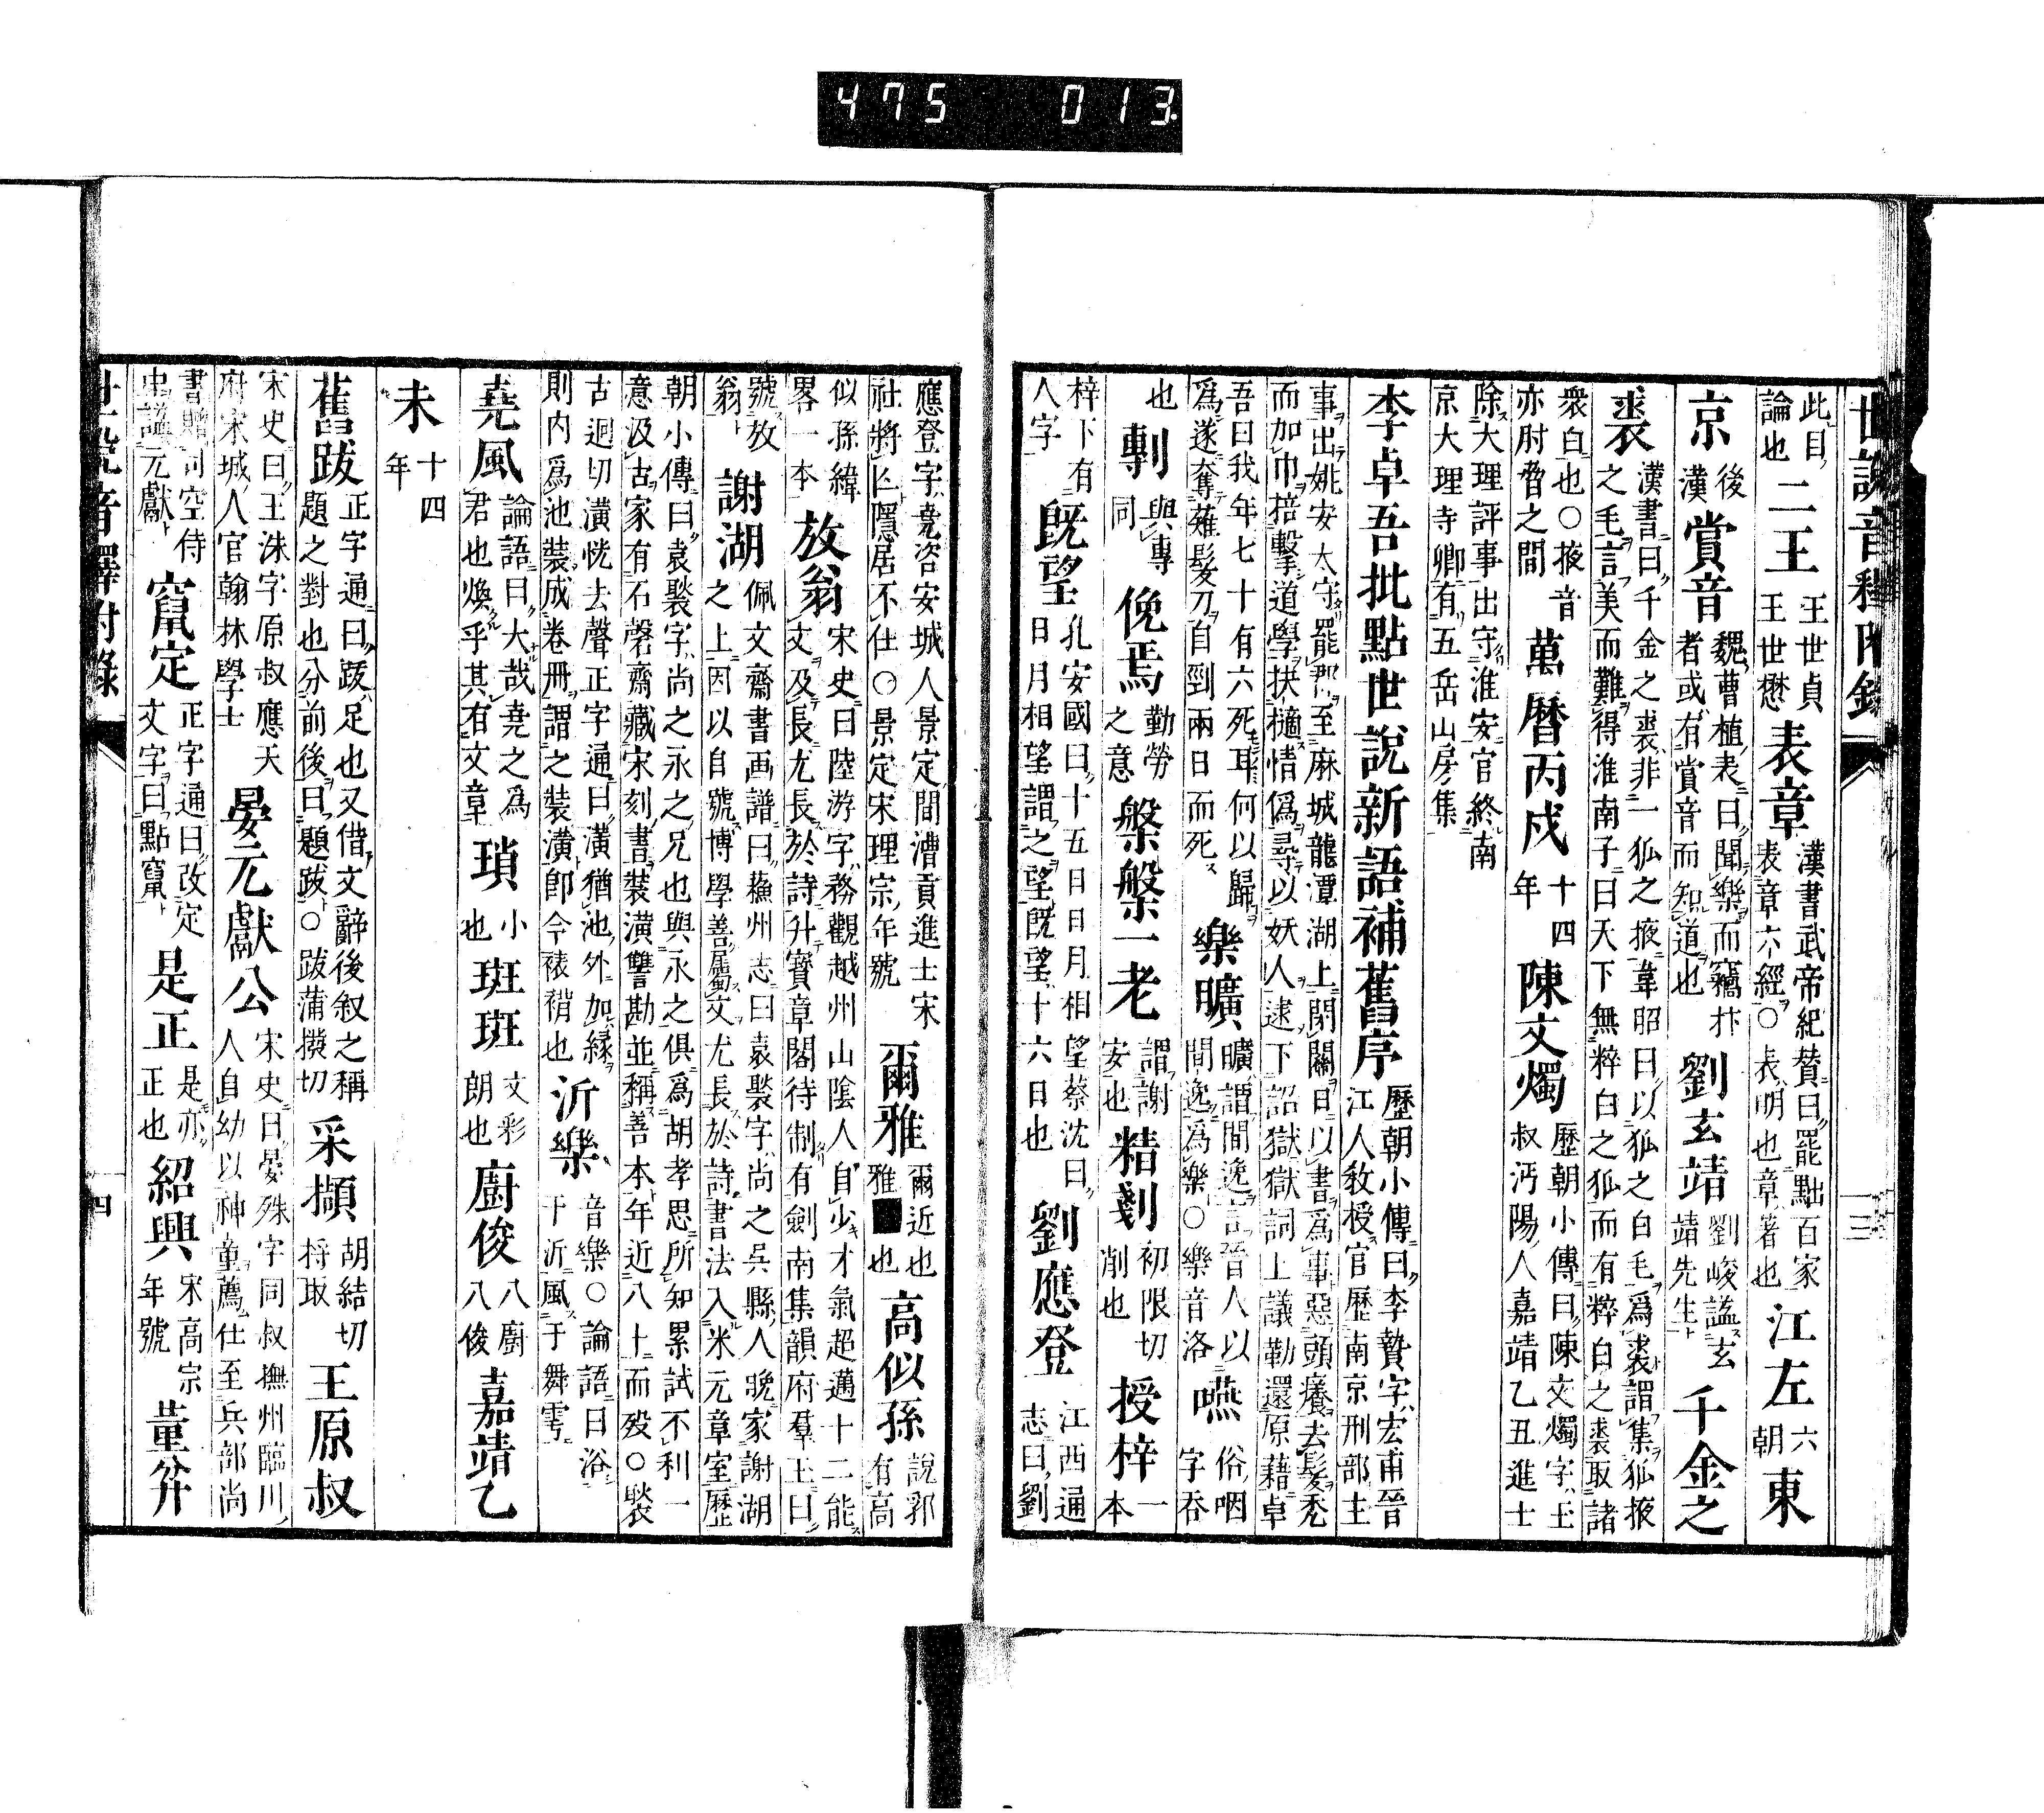 475 013
世說音釋附錄 三
此目論也 二王 王世貞王世懋 表章 漢書武帝紀贊曰罷黜百家表章六經○表明也章著也 江左 六朝 東
京 後漢 賞音 魏曹植表曰聞樂而竊抃者或有賞音而知道也 劉玄靖 劉峻謚玄靖先生 千金之
裘 漢書曰千金之裘非一狐之掖韋昭曰以狐之白毛爲裘謂集狐掖之毛言美而難得淮南子曰天下無粹白之狐而有粹白之裘取諸
衆白也○掖音亦肘脅之間 萬曆丙戍 十四年 陳文燭 歷朝小傳曰陳文燭字玉叔沔陽人嘉靖乙丑進士
除大理評事出守淮安官終南京大理寺卿有五岳山房集
李卓吾批點世說新語補舊序 歷朝小傳曰李贄字宏甫晉江人敎授官歷南京刑部主
事出姚安太守罷郡至麻城龍潭湖上閉關日以書爲事惡頭癢去髮禿而加巾掊擊道學抉擿情僞尋以妖人逮下詔獄獄詞上議勒還原藉卓
吾曰我年七十有六死耳何以歸爲遂奪薙髮刀自剄兩日而死 樂曠 曠謂間逸言晉人以間逸爲樂○樂音洛 嚥 俗咽字吞
也 剸 與專同 俛焉 勤勞之意 槃槃一老 謂謝安也 精剗 初限切削也 授梓 一本
梓下有人字 既望 孔安國曰十五日日月相望蔡沈曰日月相望謂之望既望十六日也 劉應登 江西通志曰劉
應登字堯咨安城人景定間漕貢進士宋社將亾隱居不仕○景定宋理宗年號 爾雅 爾近也雅■也 高似孫 說郛有高
似孫緯畧一本 放翁 宋史曰陸游字務觀越州山陰人自少才氣超邁十二能文及長尤長於詩升寶章閣待制有劍南集韻府羣玉曰
號放翁 謝湖 佩文齋書画譜曰蘓州志曰袁褧字尚之吳縣人晚家謝湖之上因以自號博學善屬文尤長於詩書法入米元章室歷
朝小傳曰袁褧字尚之永之兄也與永之俱爲胡孝思所知累試不利一意汲古家有石磬齋藏宋刻書裝潢讐勘並稱善本年近八十而歿○褧
古迥切潢恍去聲正字通曰潢猶池外加緣則内爲池裝成卷冊謂之裝潢卽今裱褙也 沂樂 音樂○論語曰浴于沂風于舞雩
堯風 論語曰大哉堯之爲君也煥乎其有文章 瑣 小也 斑斑 文彩朗也 廚俊 八廚八俊 嘉靖乙
未 十四年
舊跋 正字通曰跋足也又借文辭後叙之稱題之對也分前後曰題跋○跋蒲撥切 采擷 胡結切捋取 王原叔
宋史曰王洙字原叔應天府宋城人官翰林學士 晏元獻公 宋史曰晏殊字同叔撫州臨川人自幼以神童薦仕至兵部尚
書贈司空侍中謚元獻 竄定 正字通曰改定文字曰點竄 是正 是亦正也 紹興 宋高宗年號 董弅
世說音釋附錄 四